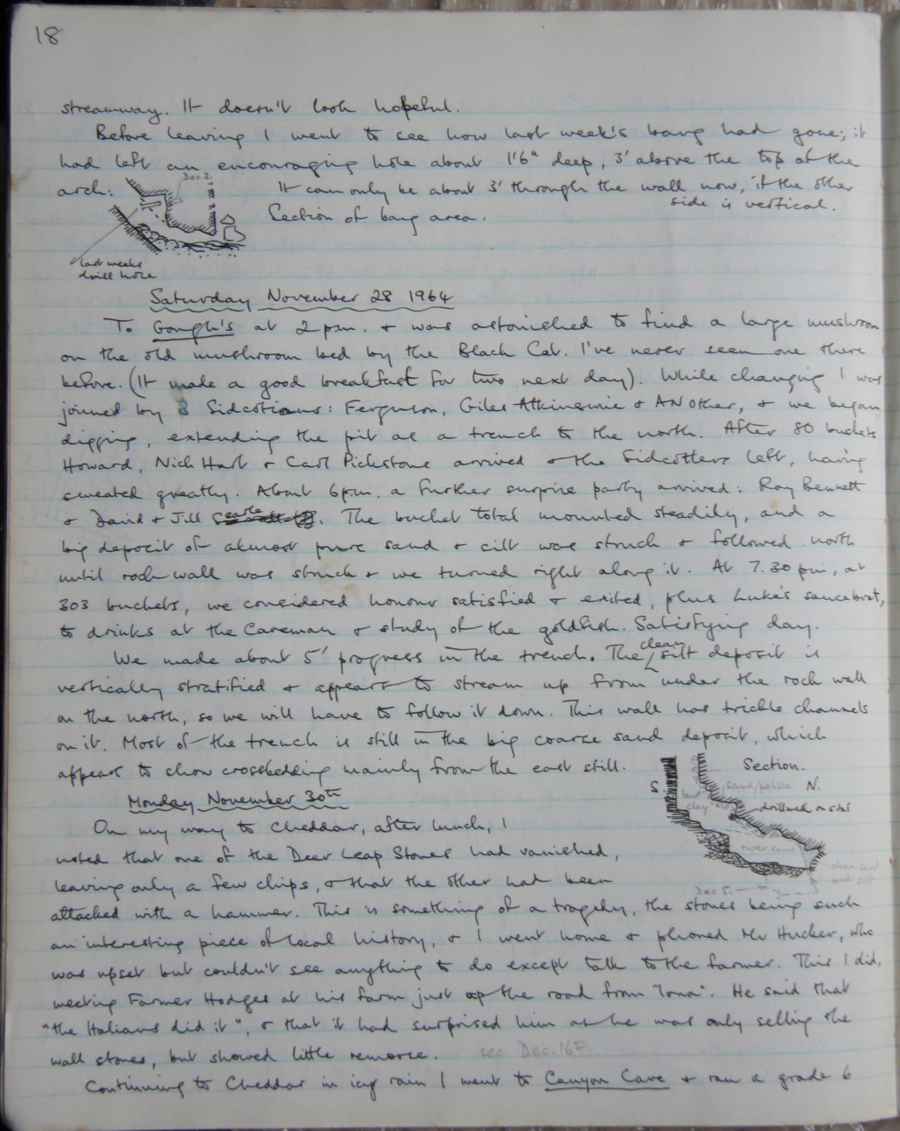 18
streamway. It doesn't look hopeful.
Before leaving I went to see how last week's bang had gone; it
had left an encouraging hole about 1'6" deep, 3' above the top of the
arch:
Dec 2.
It can only be about 3' through the wall now, if the other
side is vertical.
Section of bang area.
last weeks
drill hole
Saturday November 28 1964
To Gough's at 2 pm. & was astonished to find a large mushroom
on the old mushroom bed by the Black Cat. I've never seen one there
before. (It made a good breakfast for two next day). While changing I was
joined by 3 Sidcotians: Ferguson, Giles Atkinson & AN Other, & we began
digging, extending the pit as a trench to the north. After 80 buckets
Howard, Nich Hart & Carl Pickstone arrived & the Sidcotters left, having
sweated greatly. About 6pm. a further surprise party arrived: Ray Bennett
& David & Jill. The bucket total mounted steadily, and a
big deposit of almost pure sand & silt was struck & followed north
until rock wall was struck & we turned right along it. At 7.30 pm, at
303 buckets, we considered honour satisfied & exited, plus Luke's sauceboat,
to drinks at the Caveman & study of the goldfish. Satisfying day.
We made about 5' progress in the trench. The clean silt deposit is
vertically stratified & appears to stream up from under the rock wall
on the north, so we will have to follow it down. This wall has trickle channels
on it. Most of the trench is still in the big coarse sand deposit, which
appears to show crossbedding mainly from the east still.
Section.
S
N.
clay
Dec 5.
Monday November 30th
On my way to Cheddar, after lunch, I
noted that one of the Deer Leap Stones had vanished,
leaving only a few chips, & that the other had been
attacked with a hammer. This is something of a tragedy, the stones being such
an interesting piece of local history, & I went home & phoned Mr Hucker, who
was upset but couldn't see anything to do except talk to the farmer. This I did,
meeting Farmer Hodges at his farm just up the road from "Iona". He said that
"the Italians did it", & that it had surprised him as he was only selling the
wall stones, but showed little remorse. see Dec. 16th
Continuing to Cheddar in icy rain I went to Canyon Cave & ran a grade 6